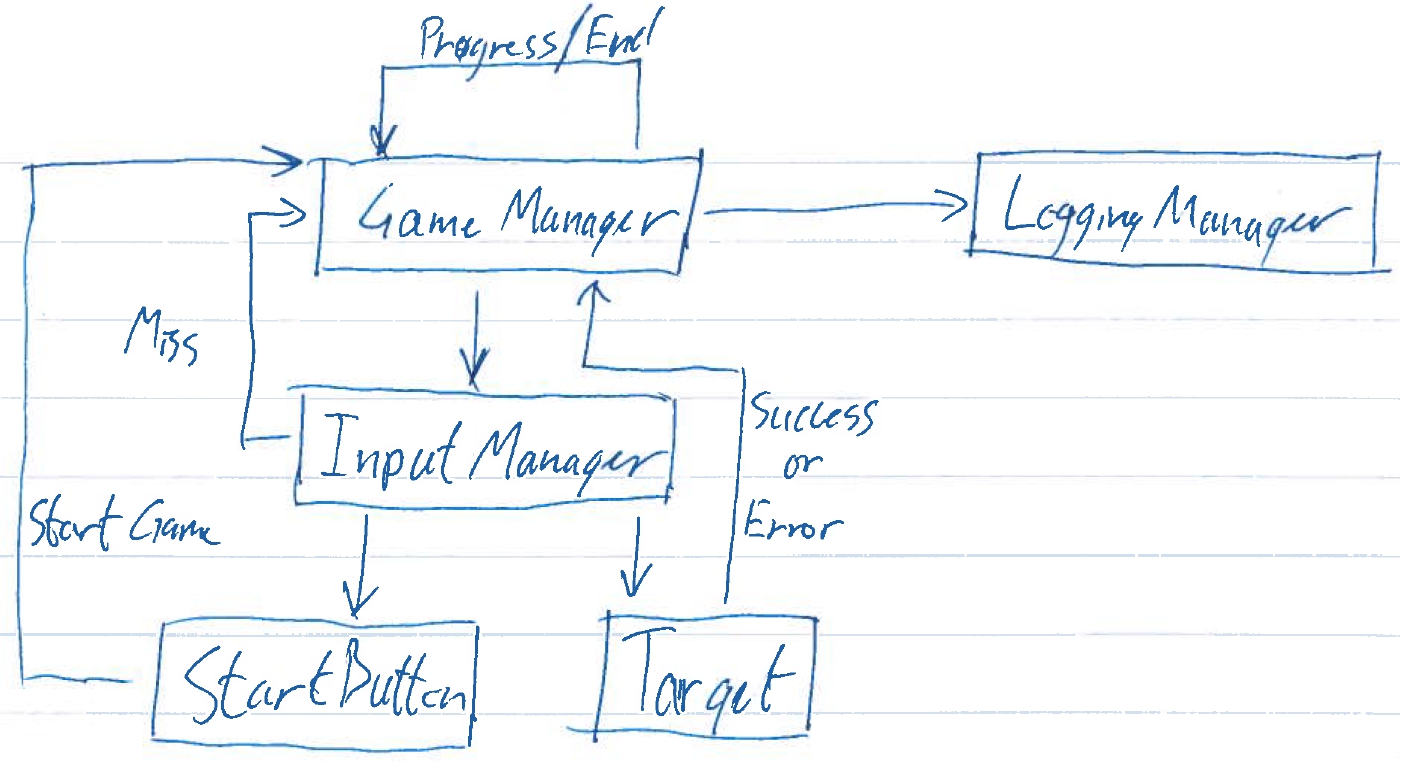 Progress/End
Game Manager
Logging Manager
Miss
Input Manager
Success
or
Error
Start Game
Start Button
Target